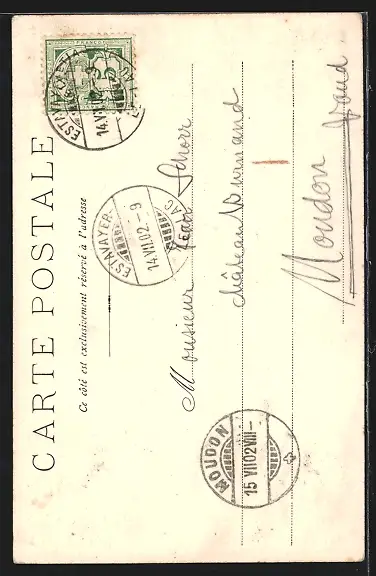 CARTE POSTALE
Ce côté est exclusivement réservé à l'adresse
FRANCO
ESTAVAYER
14.VII.02
ESTAVAYER-LAC
14.VII.02.-9
Monsieur Jean Schorr
château Burnand
Moudon
Vaud
MOUDON
15 VII 02 VIII-